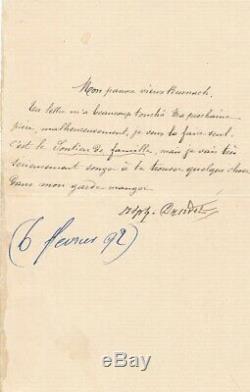 Mon pauvre vieux Busnach.
Ta lettre m'a beaucoup touché. Ma prochaine
pièce, malheureusement, je veux la faire seul.
c'est le Soutien de famille, mais je vais très
sérieusement songer à te trouver quelque chose
dans mon garde manger.
Alph. Daudet
(6 février 92)